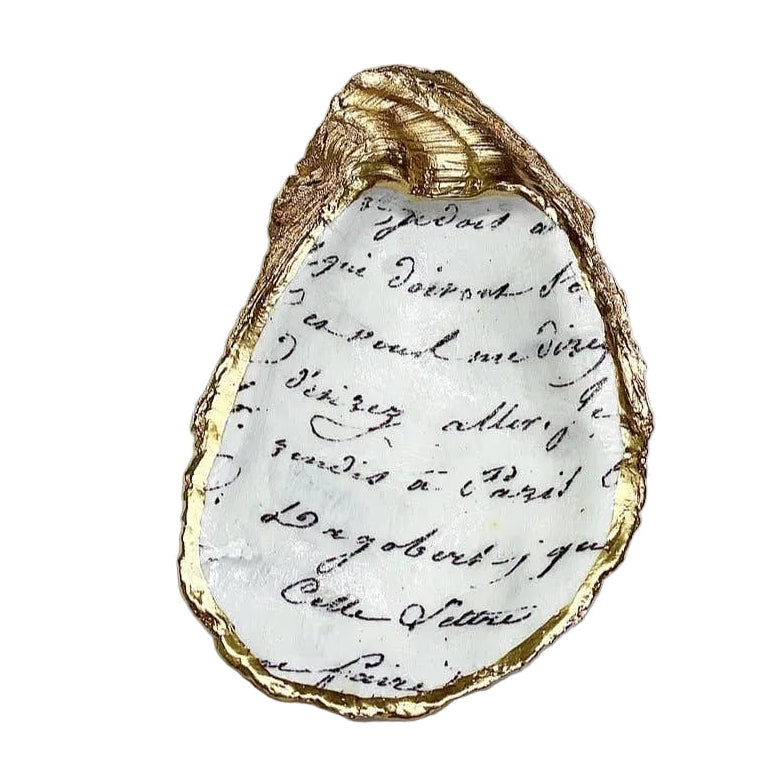 je dois a
qui doivent s'o
vous me direz
d'érirez aller. Je
rendis à Paris
Dagobert-j que
Celle Lettre
faire